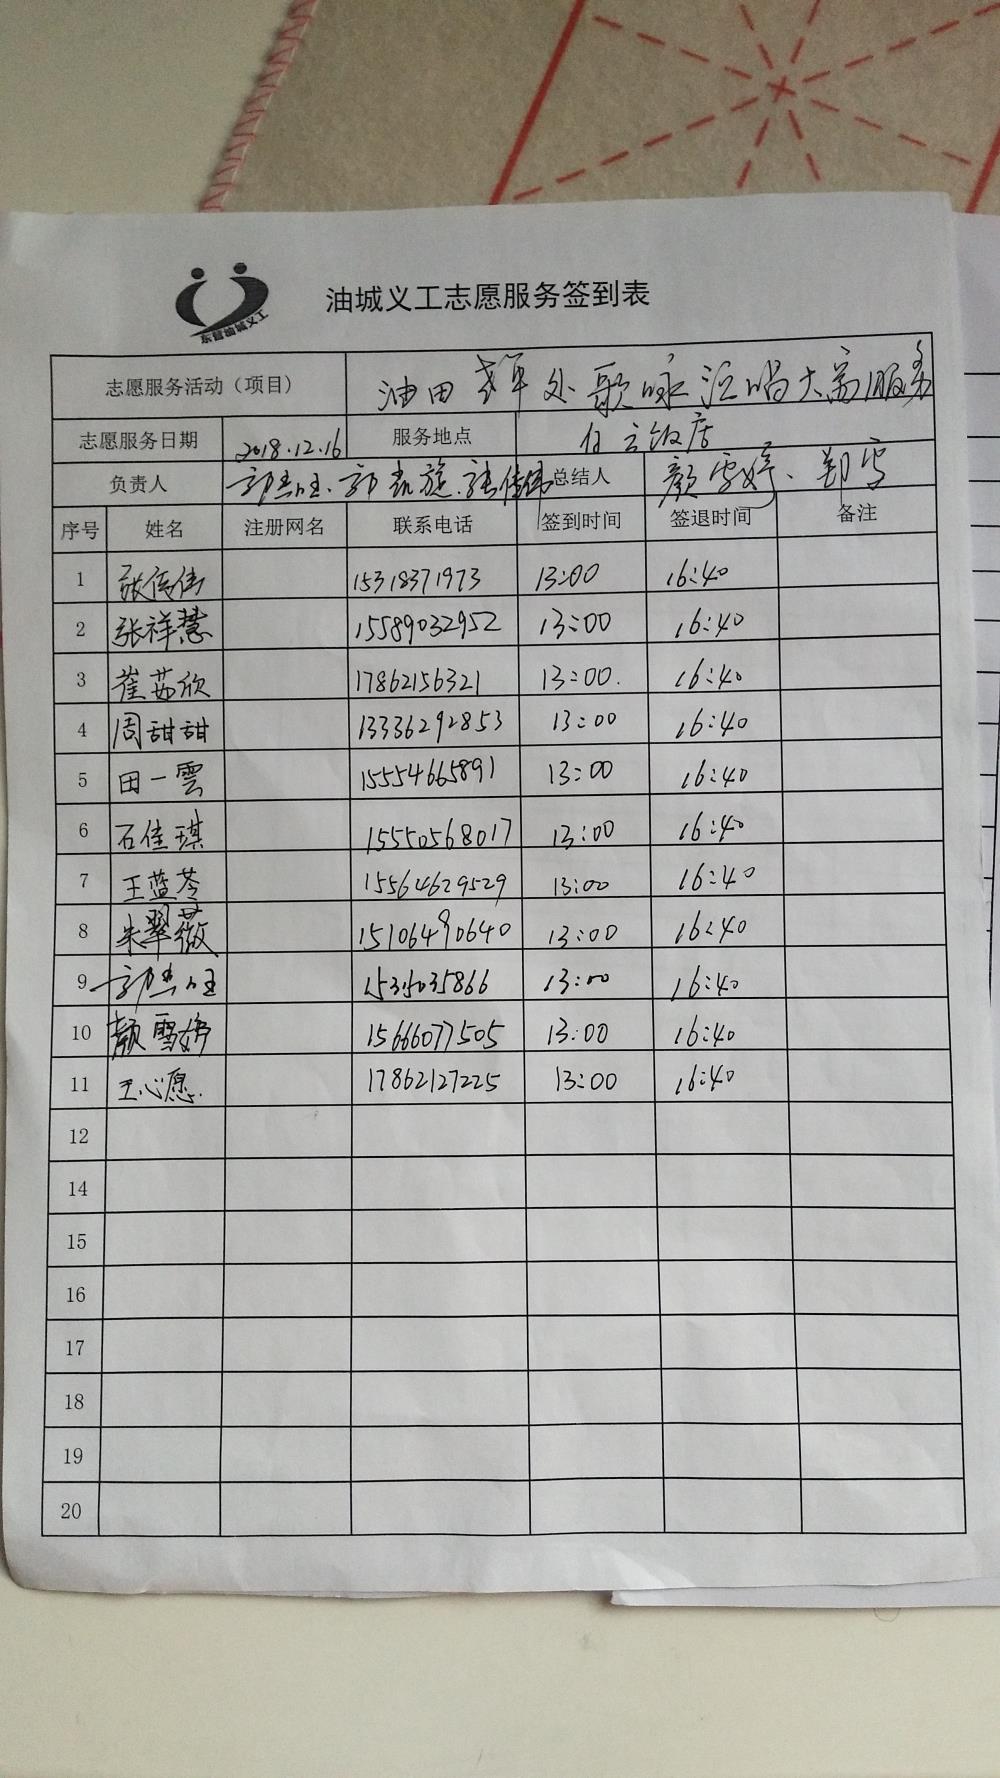 东营油城义工
油城义工志愿服务签到表
志愿服务活动（项目） 油田 处歌咏演唱大赛服务
志愿服务日期 2018.12.16 服务地点 白云饭店
负责人 郭 郭凯旋、张倩伟 总结人 颜雪婷、郑雪
序号 姓名 注册网名 联系电话 签到时间 签退时间 备注
1 张倩伟 15318371973 13:00 16:40
2 张祥慧 15589032952 13:00 16:40
3 崔茹欣 17862156321 13:00. 16:40
4 周甜甜 13336292853 13:00 16:40
5 田一雲 15554665891 13:00 16:40
6 石佳琪 15550568017 13:00 16:40
7 王蓝苓 15564629529 13:00 16:40
8 朱翠薇 15106490640 13:00 16:40
9 郭 13:00 16:40
10 颜雪婷 15666077505 13:00 16:40
11 王心愿. 17862127225 13:00 16:40
12
14
15
16
17
18
19
20